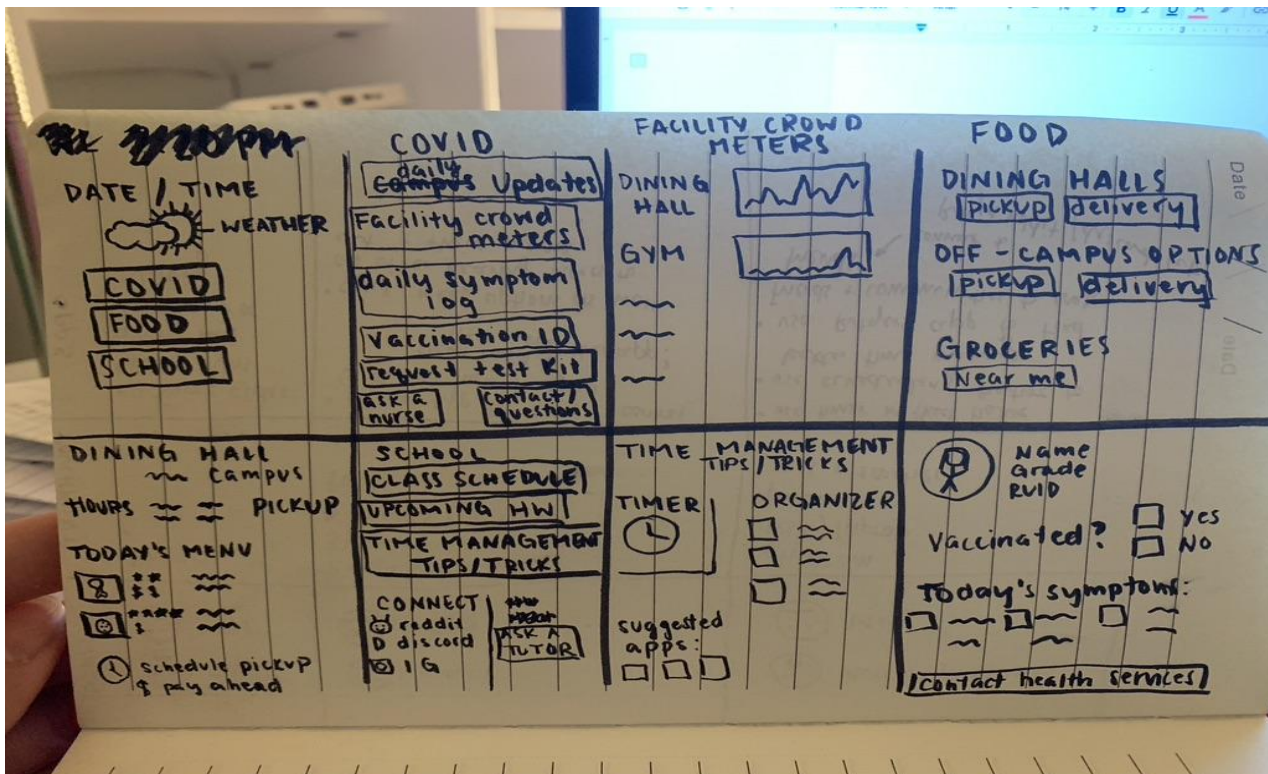 COVID
FACILITY CROWD
METERS
FOOD
DATE / TIME
WEATHER
COVID
FOOD
SCHOOL
daily
campus updates
Facility crowd
meters
daily symptom
log
Vaccination ID
request test kit
ask a
nurse
contact/
questions
DINING
HALL
GYM
DINING HALLS
pickup delivery
OFF-CAMPUS OPTIONS
pickup delivery
GROCERIES
Near me
Date
DINING HALL
campus
HOURS PICKUP
TODAY'S MENU
**
$$
****
$
schedule pickup
& pay ahead
SCHOOL
CLASS SCHEDULE
UPCOMING HW
TIME MANAGEMENT
TIPS/TRICKS
CONNECT
reddit
discord
IG
ASK A
TUTOR
TIME MANAGEMENT
TIPS/TRICKS
TIMER
ORGANIZER
suggested
apps:
Name
Grade
RUID
Vaccinated?
Yes
NO
Today's symptoms:
contact health services